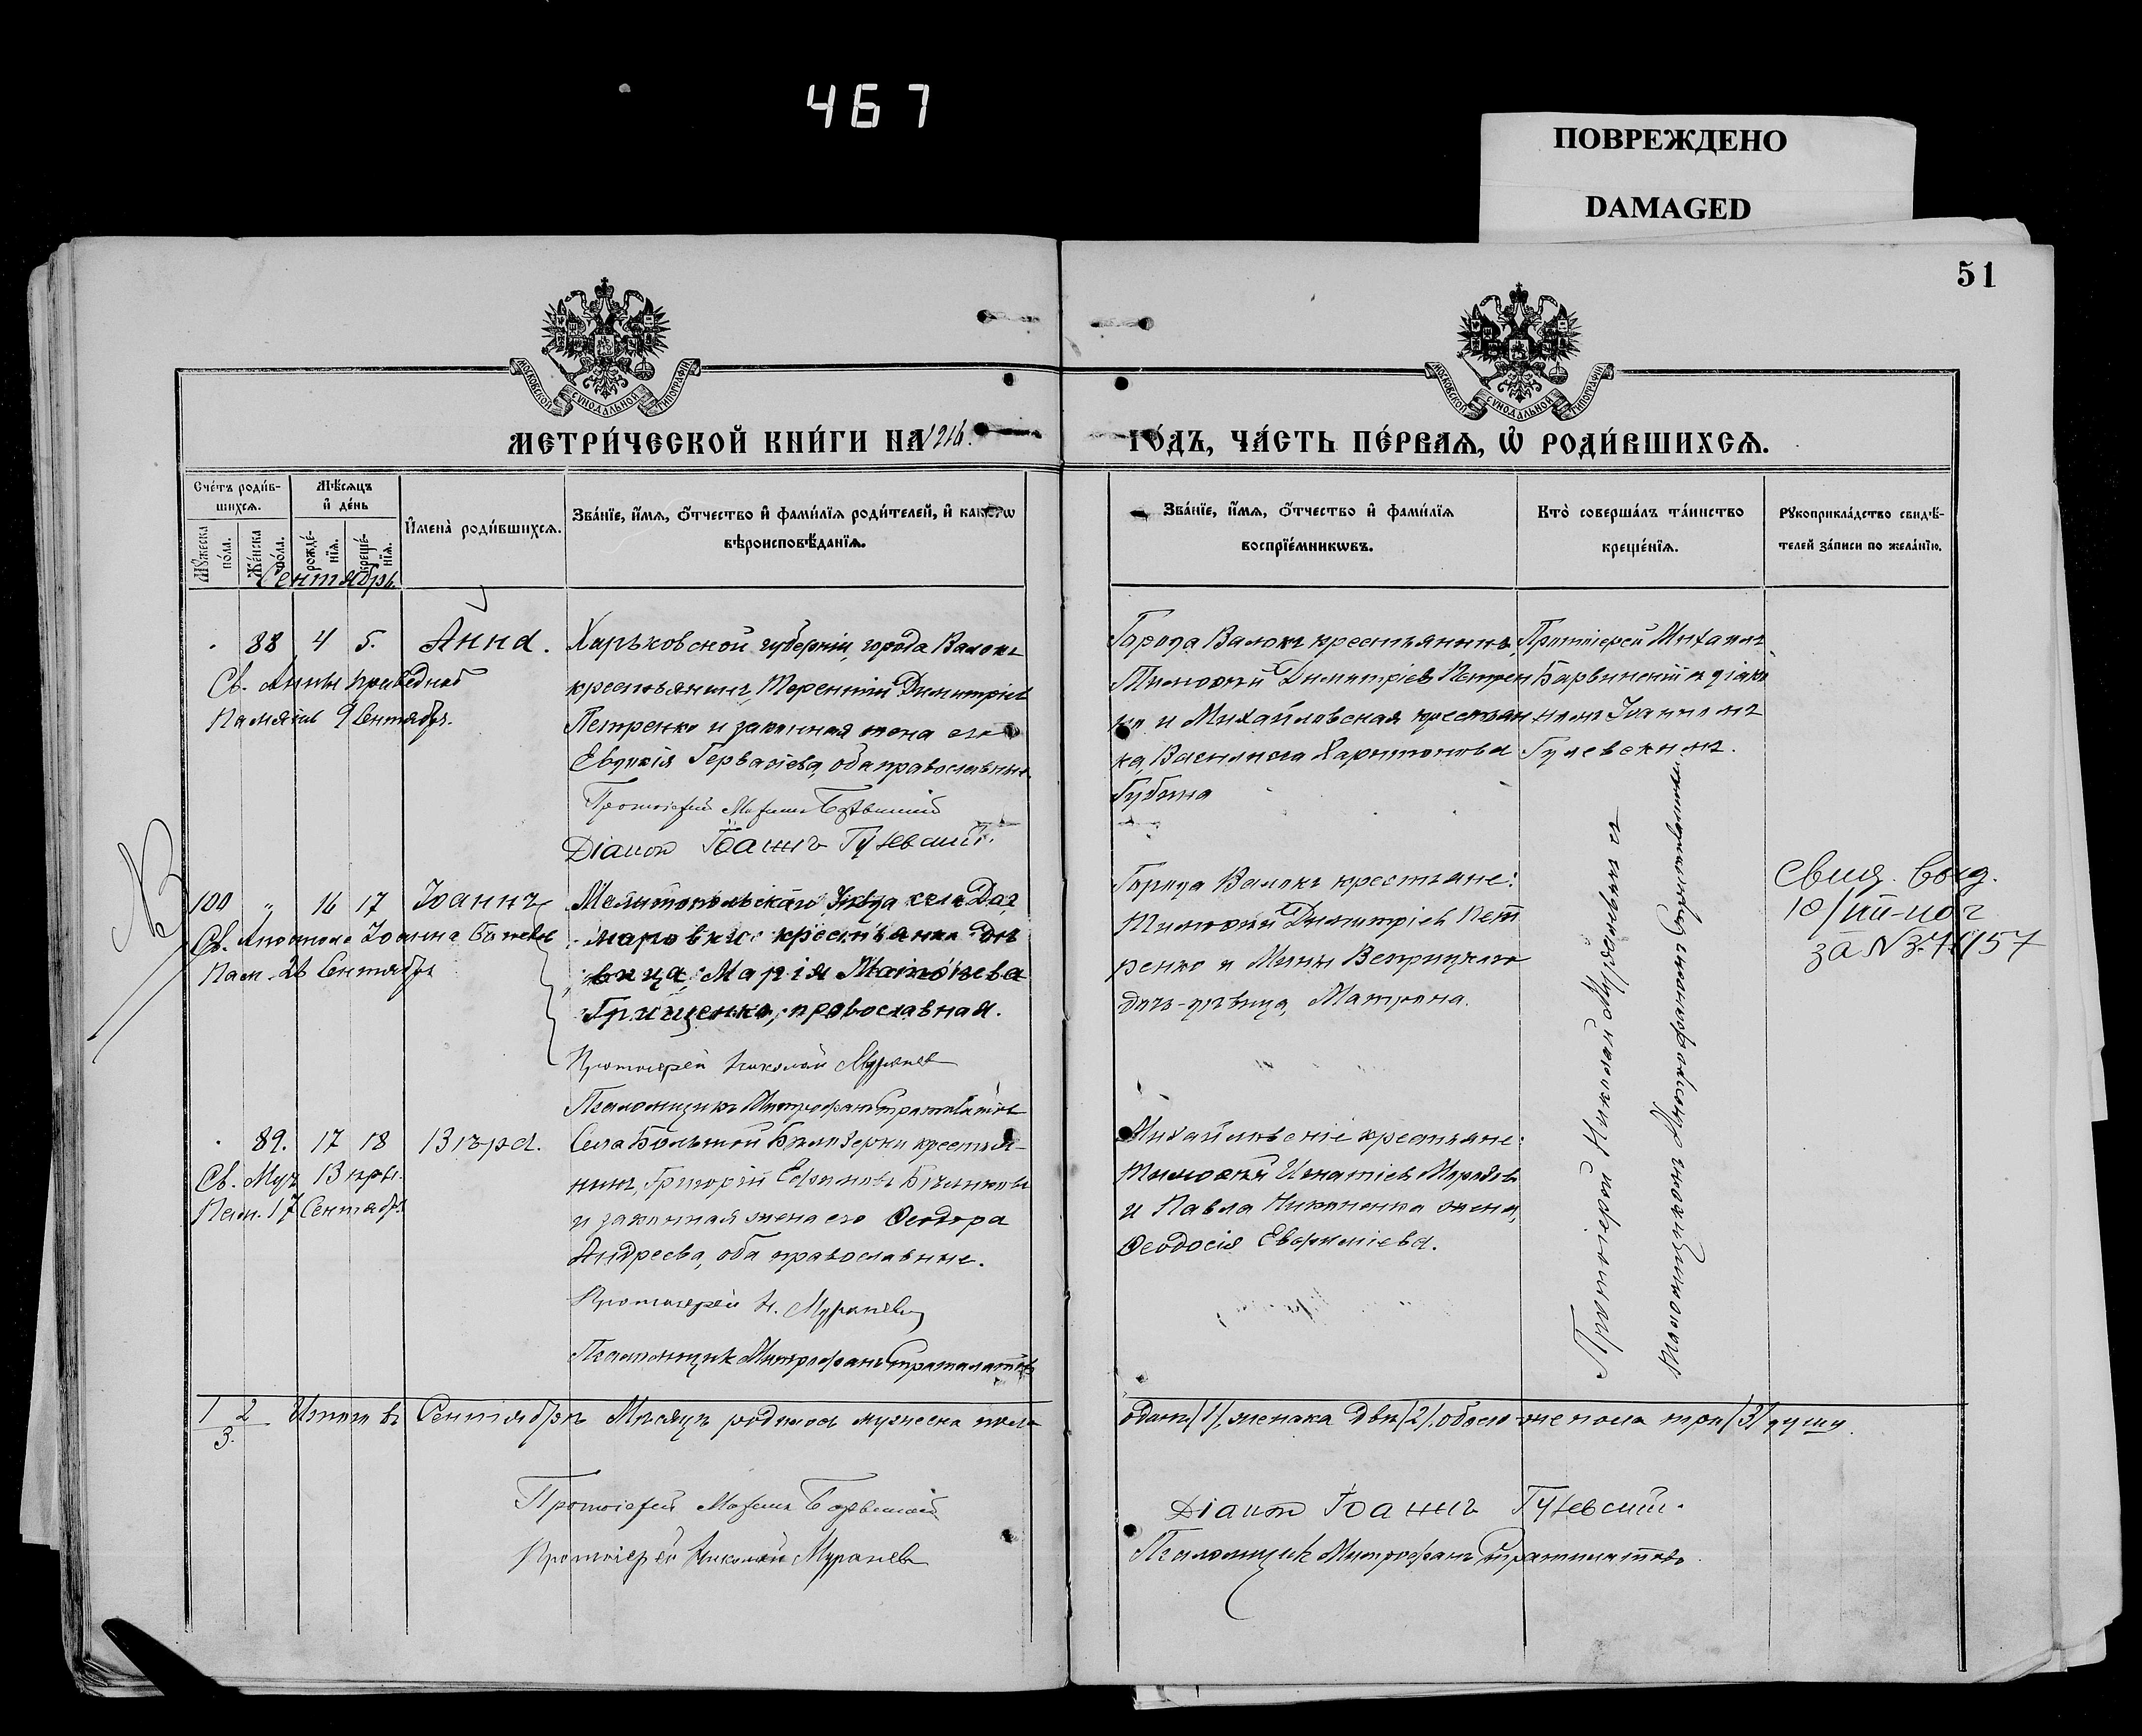 467
ПОВРЕЖДЕНО
DAMAGED
51
МОСКОВСКОЙ СѴНОДАЛЬНОЙ ТИПОГРАФІИ
МОСКОВСКОЙ СѴНОДАЛЬНОЙ ТИПОГРАФІИ
МЕТРИ́ЧЕСКОЙ КНИ́ГИ НА 1916.
ГО́ДЪ, ЧА́СТЬ ПЕ́РВАЯ, Ѡ҆ РОДИ́ВШИХСЯ.
Сче́тъ роди́в-
шихся.
Мѣ́сяцъ
и҆ де́нь
Мꙋ́жеска
по́ла.
Же́нска
по́ла.
рожде́-
нїя.
креще́-
нїя.
И҆мена̀ роди́вшихся.
Зва́нїе, и҆́мя, ѻ҆́тчество и҆ фами́лїя роди́телей, и҆ како́гѡ
вѣроисповѣ́данїя.
Зва́нїе, и҆́мя, ѻ҆́тчество и҆ фами́лїя
воспрїе́мникѡвъ.
Кто̀ соверша́лъ та́инство
креще́нїя.
Рꙋкоприкла́дство свидѣ́-
телей за́писи по жела́нїю.
Сентябрь
88 4 5. Анна.
Св. Анны праведной
Память 9 Сентября.
Харьковской губерніи, города Валокъ
крестьянинъ Терентій Димитріевъ
Петренко и законная жена его
Евдокія Гервасіева, оба православные.
Протоіерей Михаилъ Барвинскій
Діаконъ Іоаннъ Гулевскій.
Города Валокъ крестьянинъ
Тимоѳей Димитріевъ Петрен
ко и Михайловская крестьян
ка, Василиса Харитонова
Губина
Протоіерей Михаилъ
Барвинскій и діако
номъ Іоанномъ
Гулевскимъ.
100 „ 16 17 Іоаннъ
Св. Апостола Іоанна Богослова
Пам. 26 Сентября
Мелитопольскаго уѣзда села
крестьянка дѣ
вица, Марія Матѳіева
Грищенко, православная.
Протоіерей Николай Муранев
Псаломщикъ Митрофанъ
Города Валокъ крестьяне:
Тимоѳей Димитріевъ Пет
ренко и Мины
дочь-дѣвица, Матрона.
Свид. выд.
за № 3.
89. 17 18 Вѣра.
Св. Муч. Вѣры.
Пам. 17 Сентября
Села Большой Бѣлозерки крестья-
нинъ, Григорій Ефимовъ Бѣликовъ
и законная жена его Ѳеодора
Андреева, оба православные.
Протоіерей Н. Муранев
Псаломщикъ Митрофанъ
Михайловскіе крестьяне:
Тимоѳей Игнатіевъ
и Павла Никоненка жена,
Ѳеодосія Евфиміева.
Протоіерей Николай
Псаломщикомъ Митрофаномъ
1 2
3.
Итого въ Сентябрѣ Мѣсяцѣ родилось мужеска пола
одинъ /1/, женска двѣ /2/, обоего же пола три /3/ души.
Протоіерей Михаилъ Барвинскій
Протоіерей Николай Муранев
Діаконъ Іоаннъ Гулевскій.
Псаломщикъ Митрофанъ